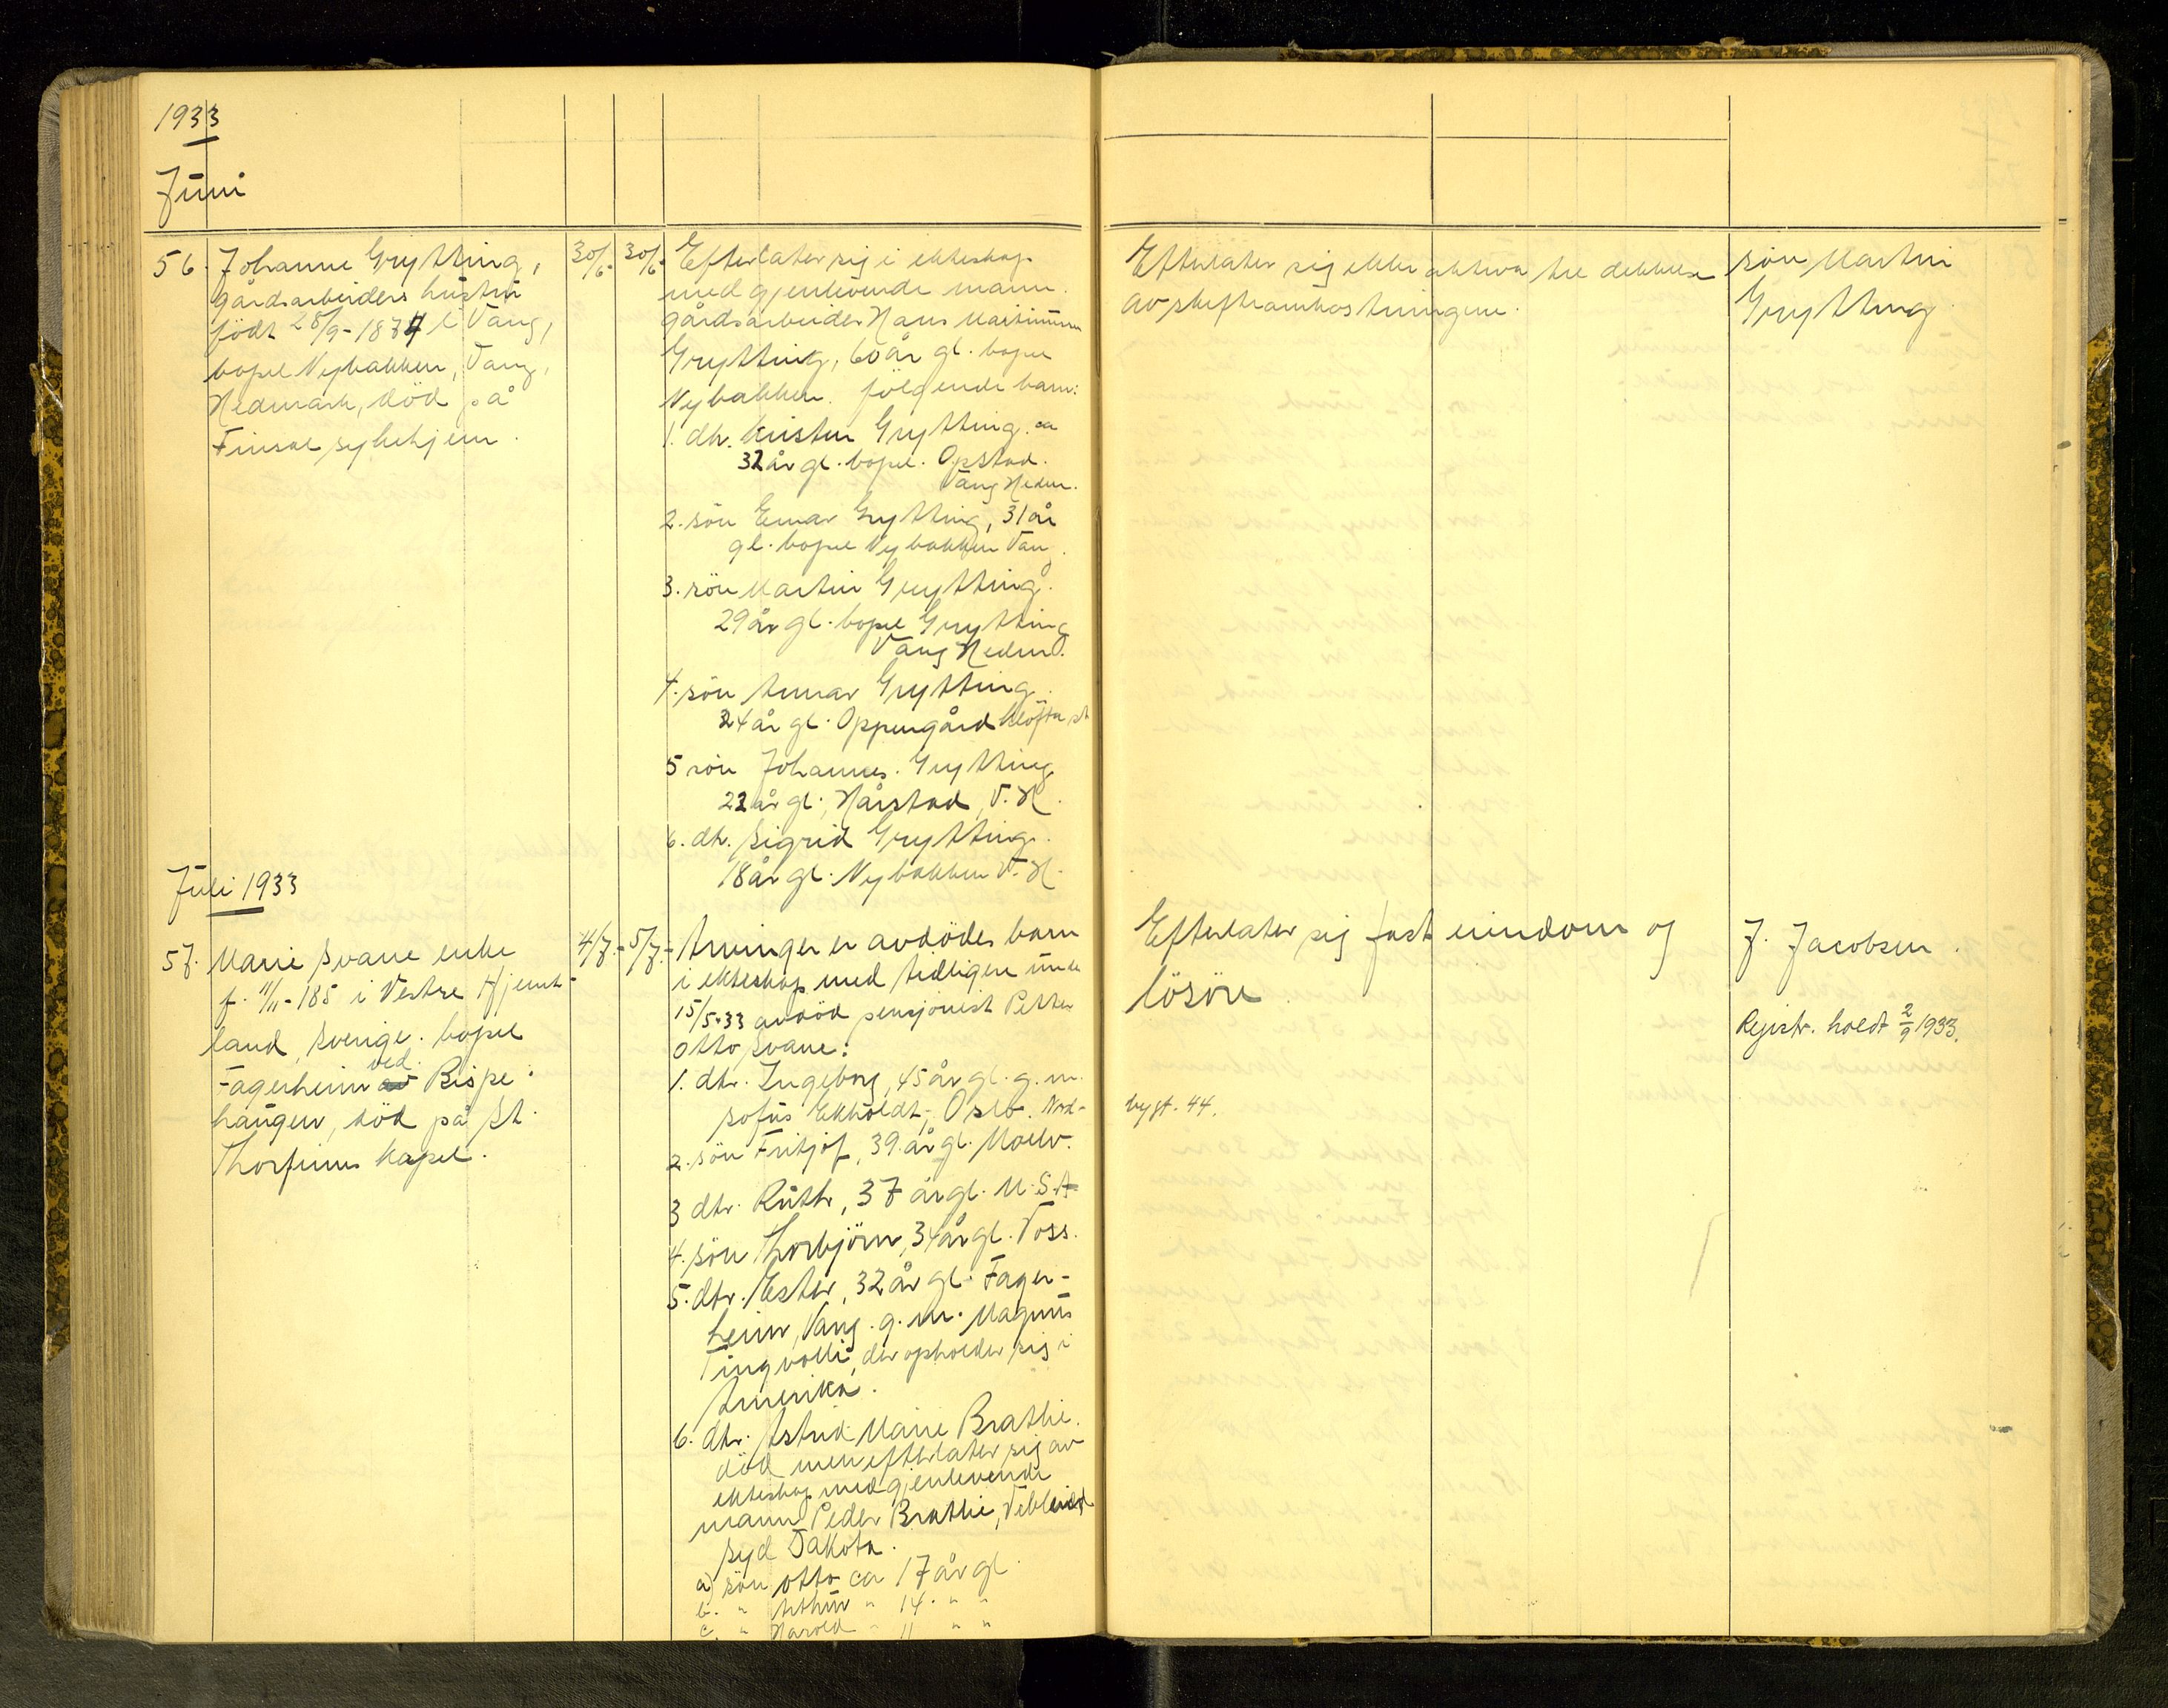 1933
Juni
56. Johanne Grytting,
gårdsarbeiders hustru
födt 28/9-1874 i Vang,
bopel Nybakken, Vang,
Hedmark, död på
Finsal sykehjem.
30/6- 30/6-
Efterlater sig i ekteskap
med gjenlevende mann.
gårdsarbeider Hans Martinusen
Grytting, 60 år gl. bopel
Nybakken. følgende barn:
1. dtr. Kristine Grytting. ca
32 år gl. bopel. Opstad.
Vang Hedm.
2. sön Einar Grytting, 31 år
gl. bopel Nybakken Vang.
3. sön Martin Grytting.
29 år gl. bopel Grytting
Vang Hedm.
4. sön Arnar Grytting.
24 år gl. Oppengård Kløfta st
5 sön Johannes. Grytting
22 år gl., Hårstad, V. H.
6. dtr. Sigrid Grytting.
18 år gl. Nybakken V. H.
Efterlater sig ikke aktiva til dekkelse
av skifteomkostningene.
sön Martin
Grytting
Juli 1933
57. Marie Svane enke
f. 11/11-185 i Vestre Hjemt-
land, Sverige. bopel
Fagerheim ved Bispe-
haugen, död på St.
Thorfinns kapel.
4/7.- 5/7.-
Arvinger er avdödes barn
i ekteskap med tidligere under
15/5-33 avdöd pensjonist Petter
Otto Svane:
1. dtr. Ingeborg, 45 år gl. g. m.
Sofus Ekholdt, Oslo. Nord-
2. sön Fritjof, 39 år gl. Moelv.
3 dtr. Ruth, 37 år gl. U.S.A.
4. sön Thorbjörn, 34 år gl. Voss.
5. dtr. Ester, 32 år gl. Fager-
heim, Vang. g. m. Magnus
Tingvolli, der opholder sig i
Amerika.
6. dtr. Astrid Marie Brathie.
död men efterlater sig av
ekteskap med gjenlevende
mann Peder Brathie,
Syd Dakota.
a) sön Otto ca 17 år gl.
b. " Arthur " 14. " "
c. " Harold " 11 " "
Efterlater sig fast eiendom og
lösöre
bygt. 44.
J. Jacobsen.
Registr. holdt 2/9 1933.